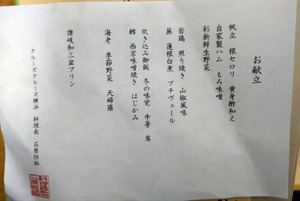 お献立
帆立 根セロリ 黄身酢和え
自家製ハム もろみ味噌
彩新鮮生野菜
若鶏 煎り焼き 山椒風味
蕪 蓮根白煮 プチヴェール
炊き込み御飯 冬の味覚 牛蒡 茸
鰆 西京味噌焼き はじかみ
海老 季節野菜 天婦羅
讃岐和三盆プリン
クルーズクルーズ横浜 料理長 石原恒裕